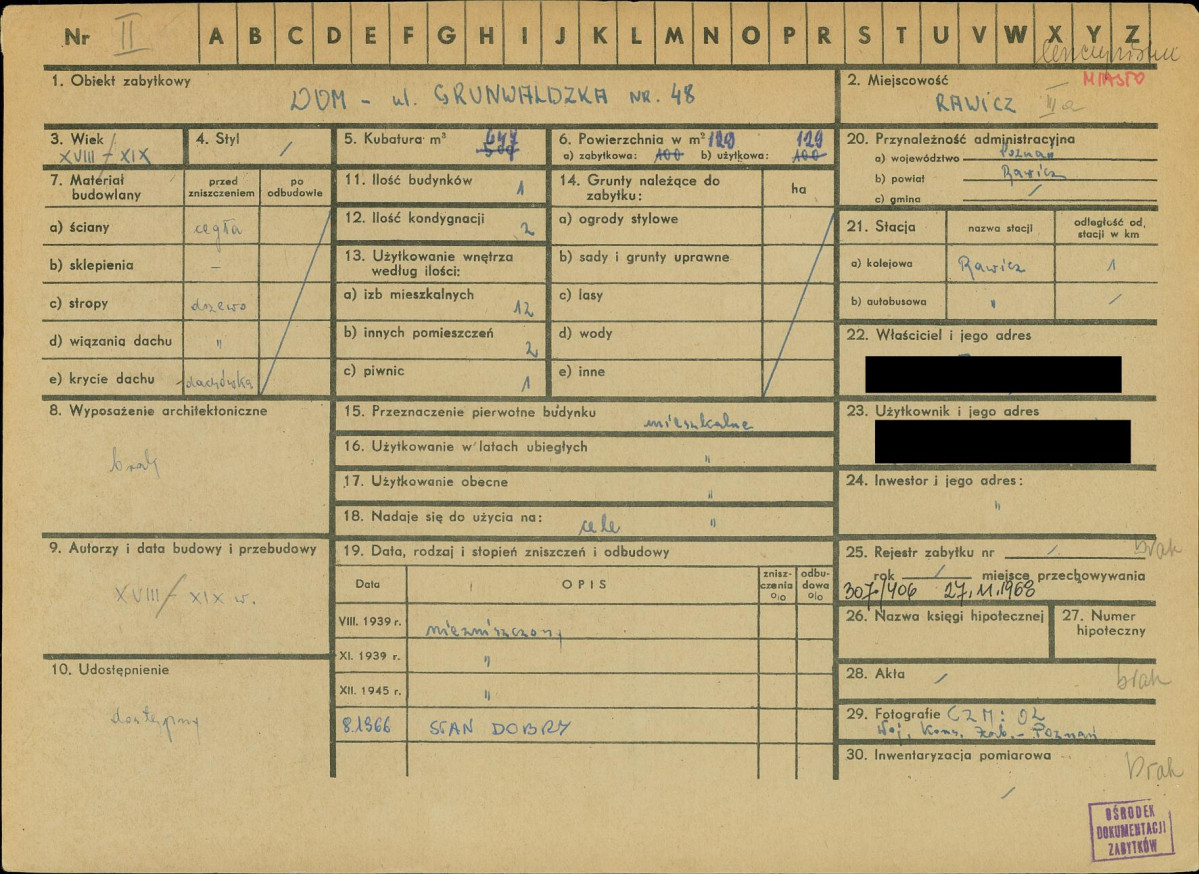 Nr II A B C D E F G H I J K L M N O P R S T U V W X Y Z
1. Obiekt zabytkowy
DOM - ul. GRUNWALDZKA NR. 48
2. Miejscowość
MIASTO
RAWICZ III a
3. Wiek
XVIII/XIX
4. Styl
/
5. Kubatura m³ 447
500
6. Powierzchnia w m² 129 129
a) zabytkowa: 100 b) użytkowa: 100
20. Przynależność administracyjna
a) województwo Poznań
b) powiat Rawicz
c) gmina /
7. Materiał budowlany
przed zniszczeniem
po odbudowie
a) ściany cegła
b) sklepienia –
c) stropy drzewo
d) wiązania dachu "
e) krycie dachu dachówka
11. Ilość budynków 1
12. Ilość kondygnacji 2
13. Użytkowanie wnętrza
według ilości:
a) izb mieszkalnych 12
b) innych pomieszczeń 2
c) piwnic 1
14. Grunty należące do
zabytku:
ha
a) ogrody stylowe
b) sady i grunty uprawne
c) lasy
d) wody
e) inne
21. Stacja
nazwa stacji
odległość od, stacji w km
a) kolejowa Rawicz 1
b) autobusowa " /
22. Właściciel i jego adres
23. Użytkownik i jego adres
24. Inwestor i jego adres:
"
8. Wyposażenie architektoniczne
brak
15. Przeznaczenie pierwotne budynku mieszkalne
16. Użytkowanie w latach ubiegłych "
17. Użytkowanie obecne "
18. Nadaje się do użycia na: cele "
9. Autorzy i data budowy i przebudowy
XVIII/XIX w.
10. Udostępnienie
dostępny
19. Data, rodzaj i stopień zniszczeń i odbudowy
Data
OPIS
znisz-
czenia
%
odbu-
dowa
%
VIII. 1939 r. niezniszczony
XI. 1939 r. "
XII. 1945 r. "
8.1966 STAN DOBRY
25. Rejestr zabytku nr / brak
rok / miejsce przechowywania
307/406 27.11.1968
26. Nazwa księgi hipotecznej
27. Numer
hipoteczny
28. Akta / brak
29. Fotografie CZM: OZ
Woj. Kons. Zab. - Poznań
30. Inwentaryzacja pomiarowa
brak
/
OŚRODEK
DOKUMENTACJI
ZABYTKÓW